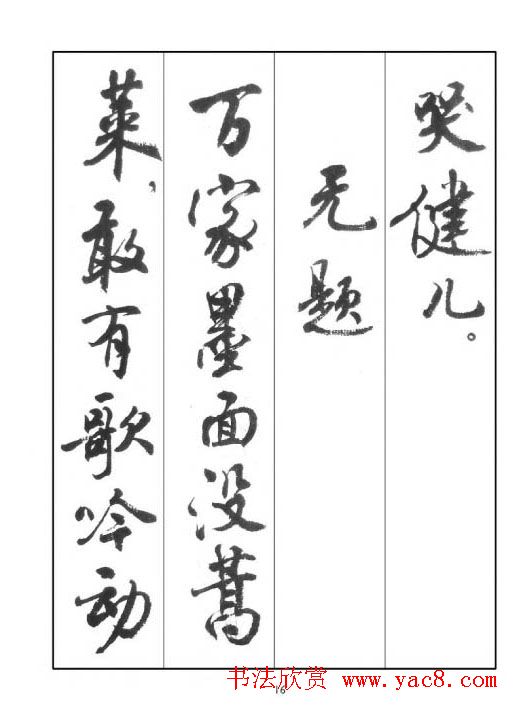 哭健儿。
无题
万家墨面没蒿
莱,敢有歌吟动
16
书法欣赏 www.yac8.com